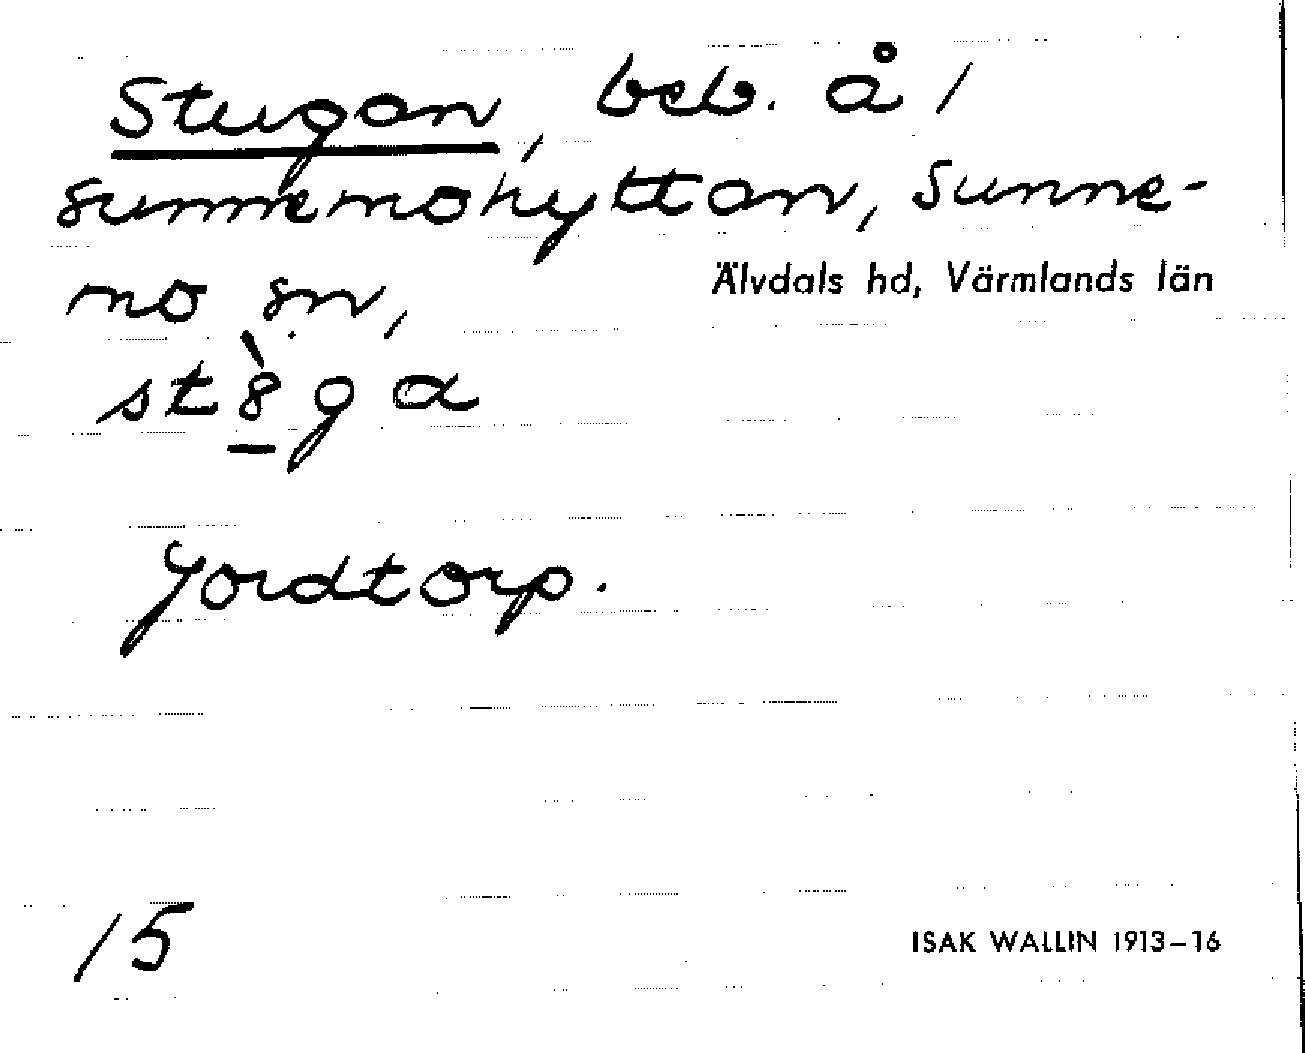 Stugan, beb. å /
Sunnemohyttan, Sunne-
mo sn,
Älvdals hd, Värmlands län
st8̱̀ga
Jordtorp.
15
ISAK WALLIN 1913–16